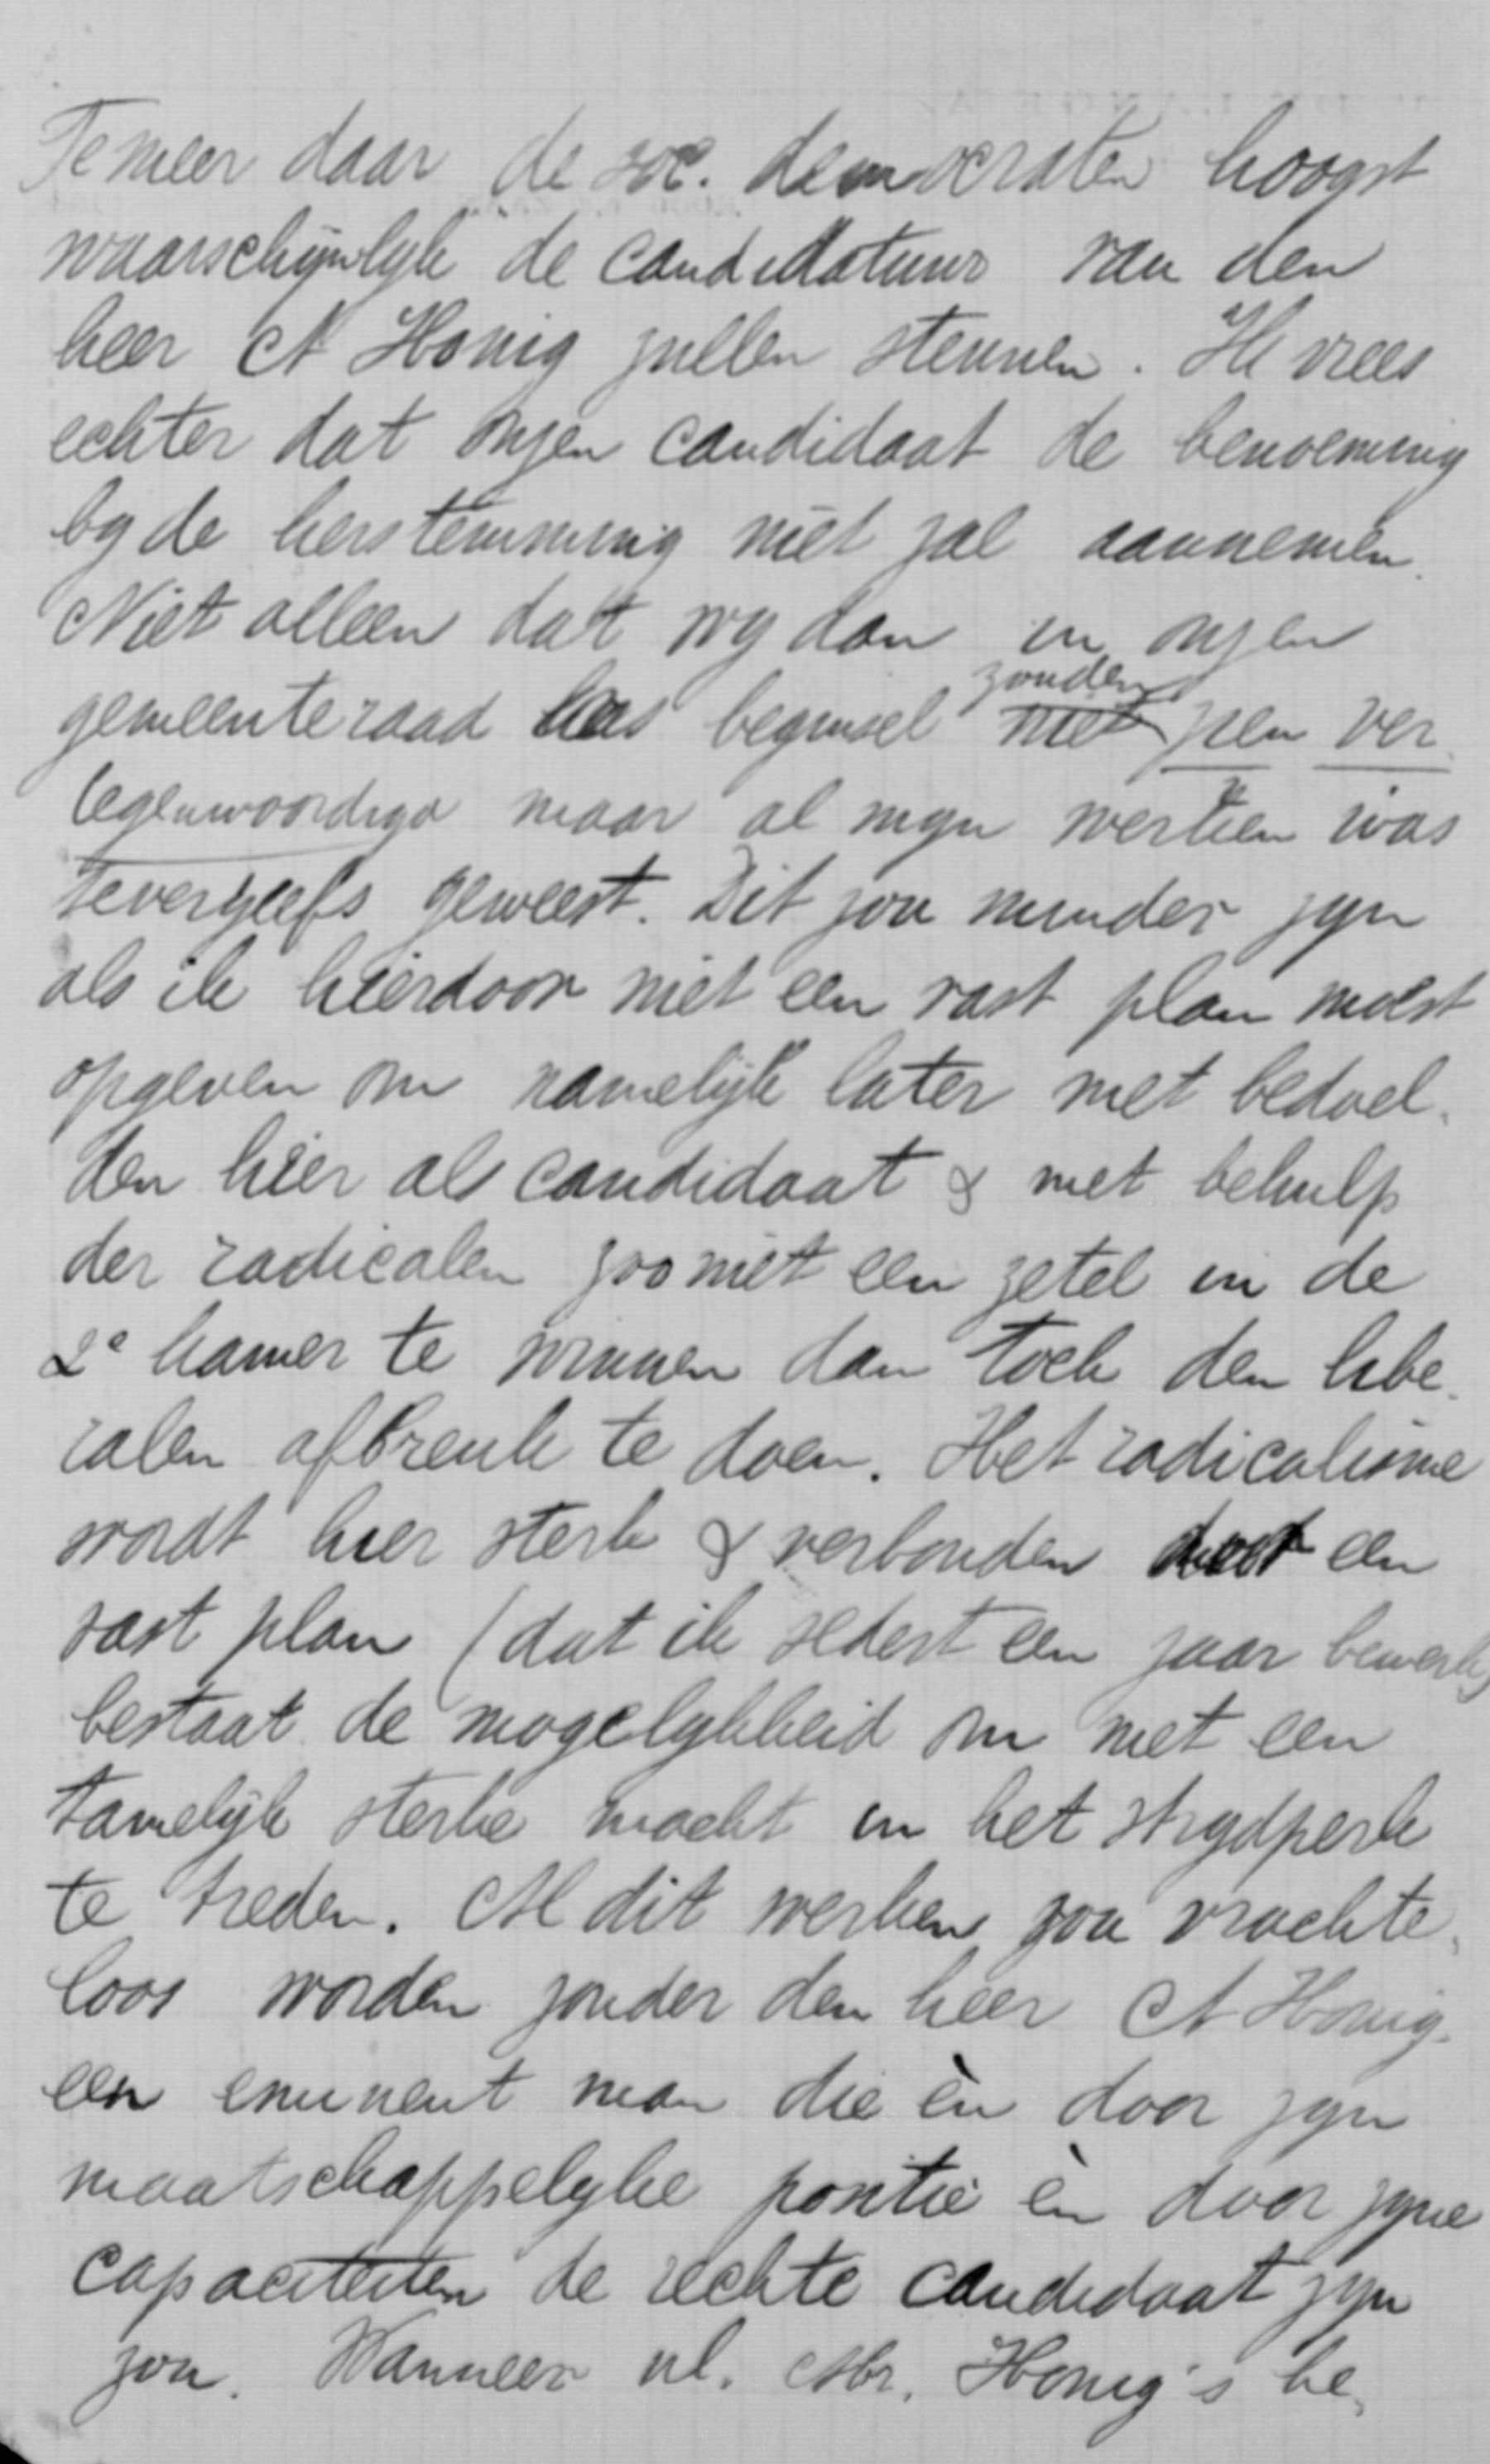 Te meer daar de soc. democraten hoogst
waarschijnlijk de candidatuur van den
heer A Honig zullen steunen. Ik vrees
echter dat onzen candidaat de benoeming
by de herstemming niet zal aannemen.
Niet alleen dat wy dan in onzen
zouden
gemeenteraad beginsel niet zien ver
tegenwoordigd maar al myn werken was
tevergeefs geweest. Dit zou minder zyn
als ik hierdoor niet een vast plan moest
opgeven om namelijk later met bedoel.
den hier als candidaat & met behulp
der radicalen zoo niet een zetel in de
2e kamer te winnen dan toch den libe.
ralen afbreuk te doen. Het radicalisme
wordt hier sterk & verbonden door een
vast plan (dat ik sedert een jaar bewerk)
bestaat de mogelykheid om met een
tamelijk sterke macht in het strydperk
te treden. Al dit werken zou vruchte.
loos worden zonder den heer A Honig.
een eminent man die èn door zyn
maatschappelyke positie èn door zyne
capaciteiten de rechte candidaat zyn
zou. Wanneer nl. Mr. Honig's be.